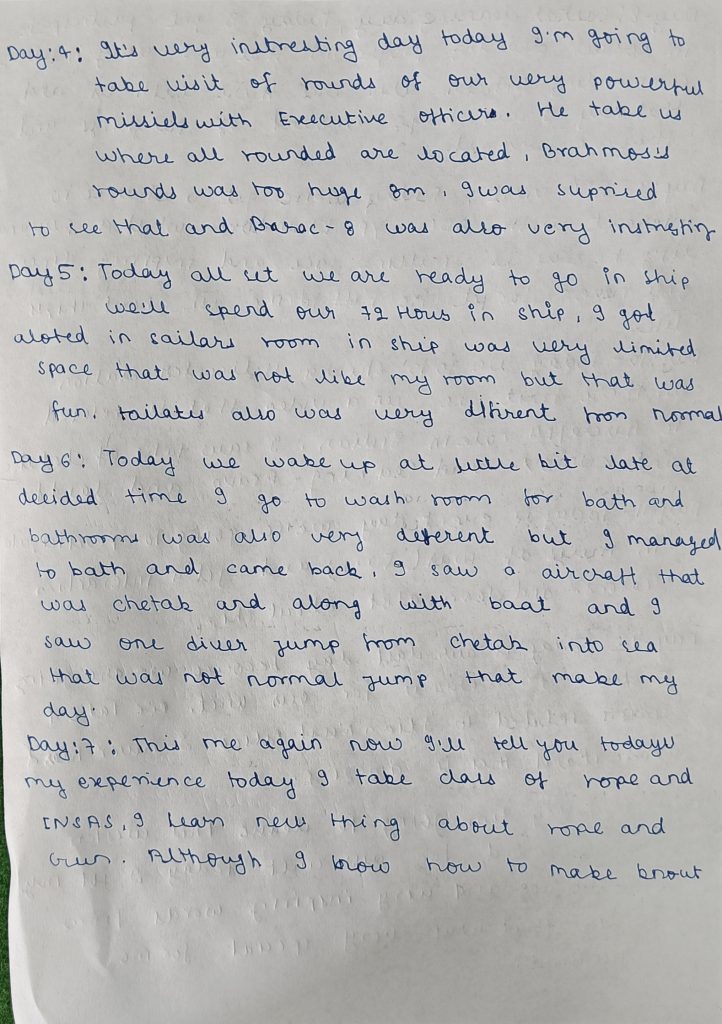 Day:4: It's very instresting day today I'm going to
take visit of rounds of our very powerful
missiels with Executive officers. He take us
where all rounded are located, Brahmos's
rounds was too huge 8m, I was suprised
to see that and Barac-8 was also very instresting
Day 5: Today all set we are ready to go in ship
we'll spend our 72 Hous in ship, I got
aloted in sailars room in ship was very limited
space that was not like my room but that was
fun. tailates also was very difirent from normal
Day 6: Today we wake up at little bit late at
decided time I go to wash room for bath and
bathrooms was also very deferent but I managed
to bath and came back. I saw a aircraft that
was chetak and along with baat and I
saw one diver jump from chetak into sea
that was not normal jump that make my
day.
Day:7: This me again now I'll tell you todays
my experience today I take class of rope and
INSAS, I learn new thing about rope and
Gun. Although I know how to make knout